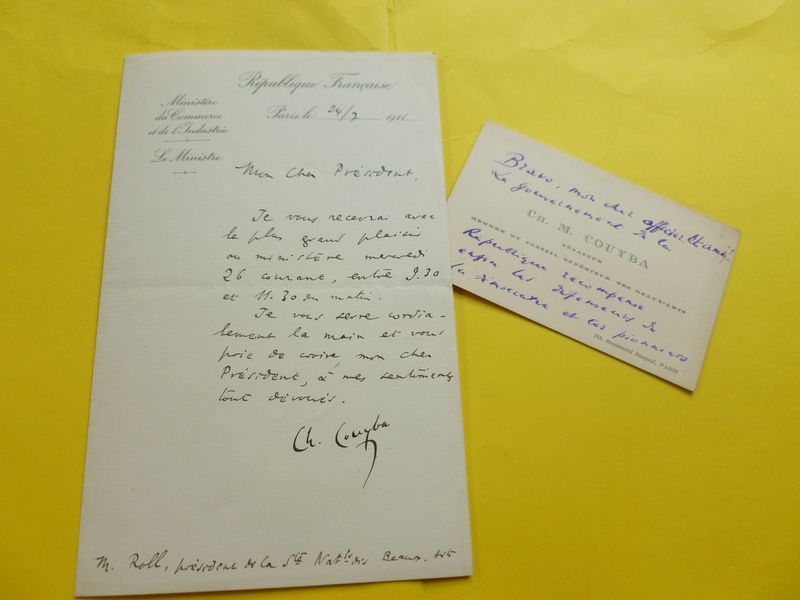 République Française
Ministère
du Commerce
et de l'Industrie
Le Ministre
Paris, le 24/7 1911
Mon cher Président,
Je vous recevrai avec
le plus grand plaisir
au ministère mercredi
26 courant, entre 9.30
et 11.30 du matin.
Je vous serre cordia-
lement la main et vous
prie de croire, mon cher
Président, à mes sentiments
tout dévoués.
Ch. Couyba
M. Roll, président de la Sté Natle des Beaux-Arts
Bravo, mon cher officier
Le gouvernement de la
CH. M. COUYBA
SÉNATEUR
MEMBRE DU CONSEIL SUPÉRIEUR DES BEAUX-ARTS
République récompense
enfin les défenseurs de
la démocratie et les pionniers
Boulevard Raspail, PARIS